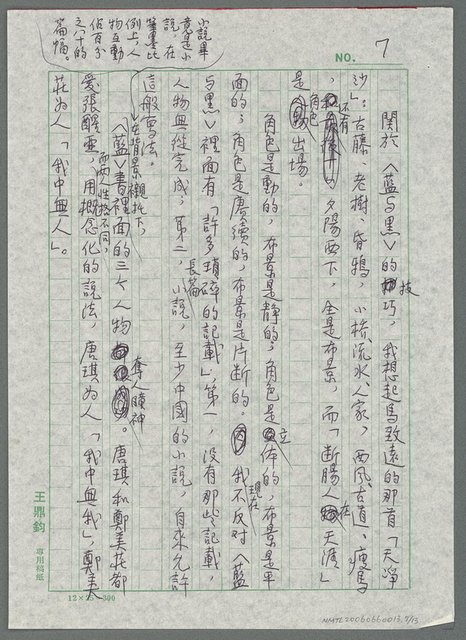 NO. 7
關於〈藍與黑〉的技巧，我想起馬致遠的那首「天淨
沙」：古藤、老樹、昏鴉，小橋、流水、人家，西風、古道、瘦馬
，還有夕陽西下，全是布景，而「斷腸人在天涯」
是角色出場。
角色是動的，布景是靜的；角色是立体的，布景是平
面的；角色是賡續的，布景是片斷的。我現在不反对〈藍
与黑〉裡面有「許多瑣碎的記載」，第一，没有那些記載，
人物無從完成，第二，長篇小説，至少中國的小説，自來允許
這般寫法。
小說畢
竟是小
說，在
筆墨比
例上，人
物互動
佔百分
之八十的
篇幅。
在背景襯托下，
〈藍〉書裡面的三个人物奪人瞳神。唐琪和鄭美莊都
愛張醒亞，而兩人性格不同，用概念化的説法，唐琪为人「我中無我」，鄭美
莊为人「我中無人」。
王鼎鈞 專用稿紙
12×25=300
NMTL20050660013, 7/13